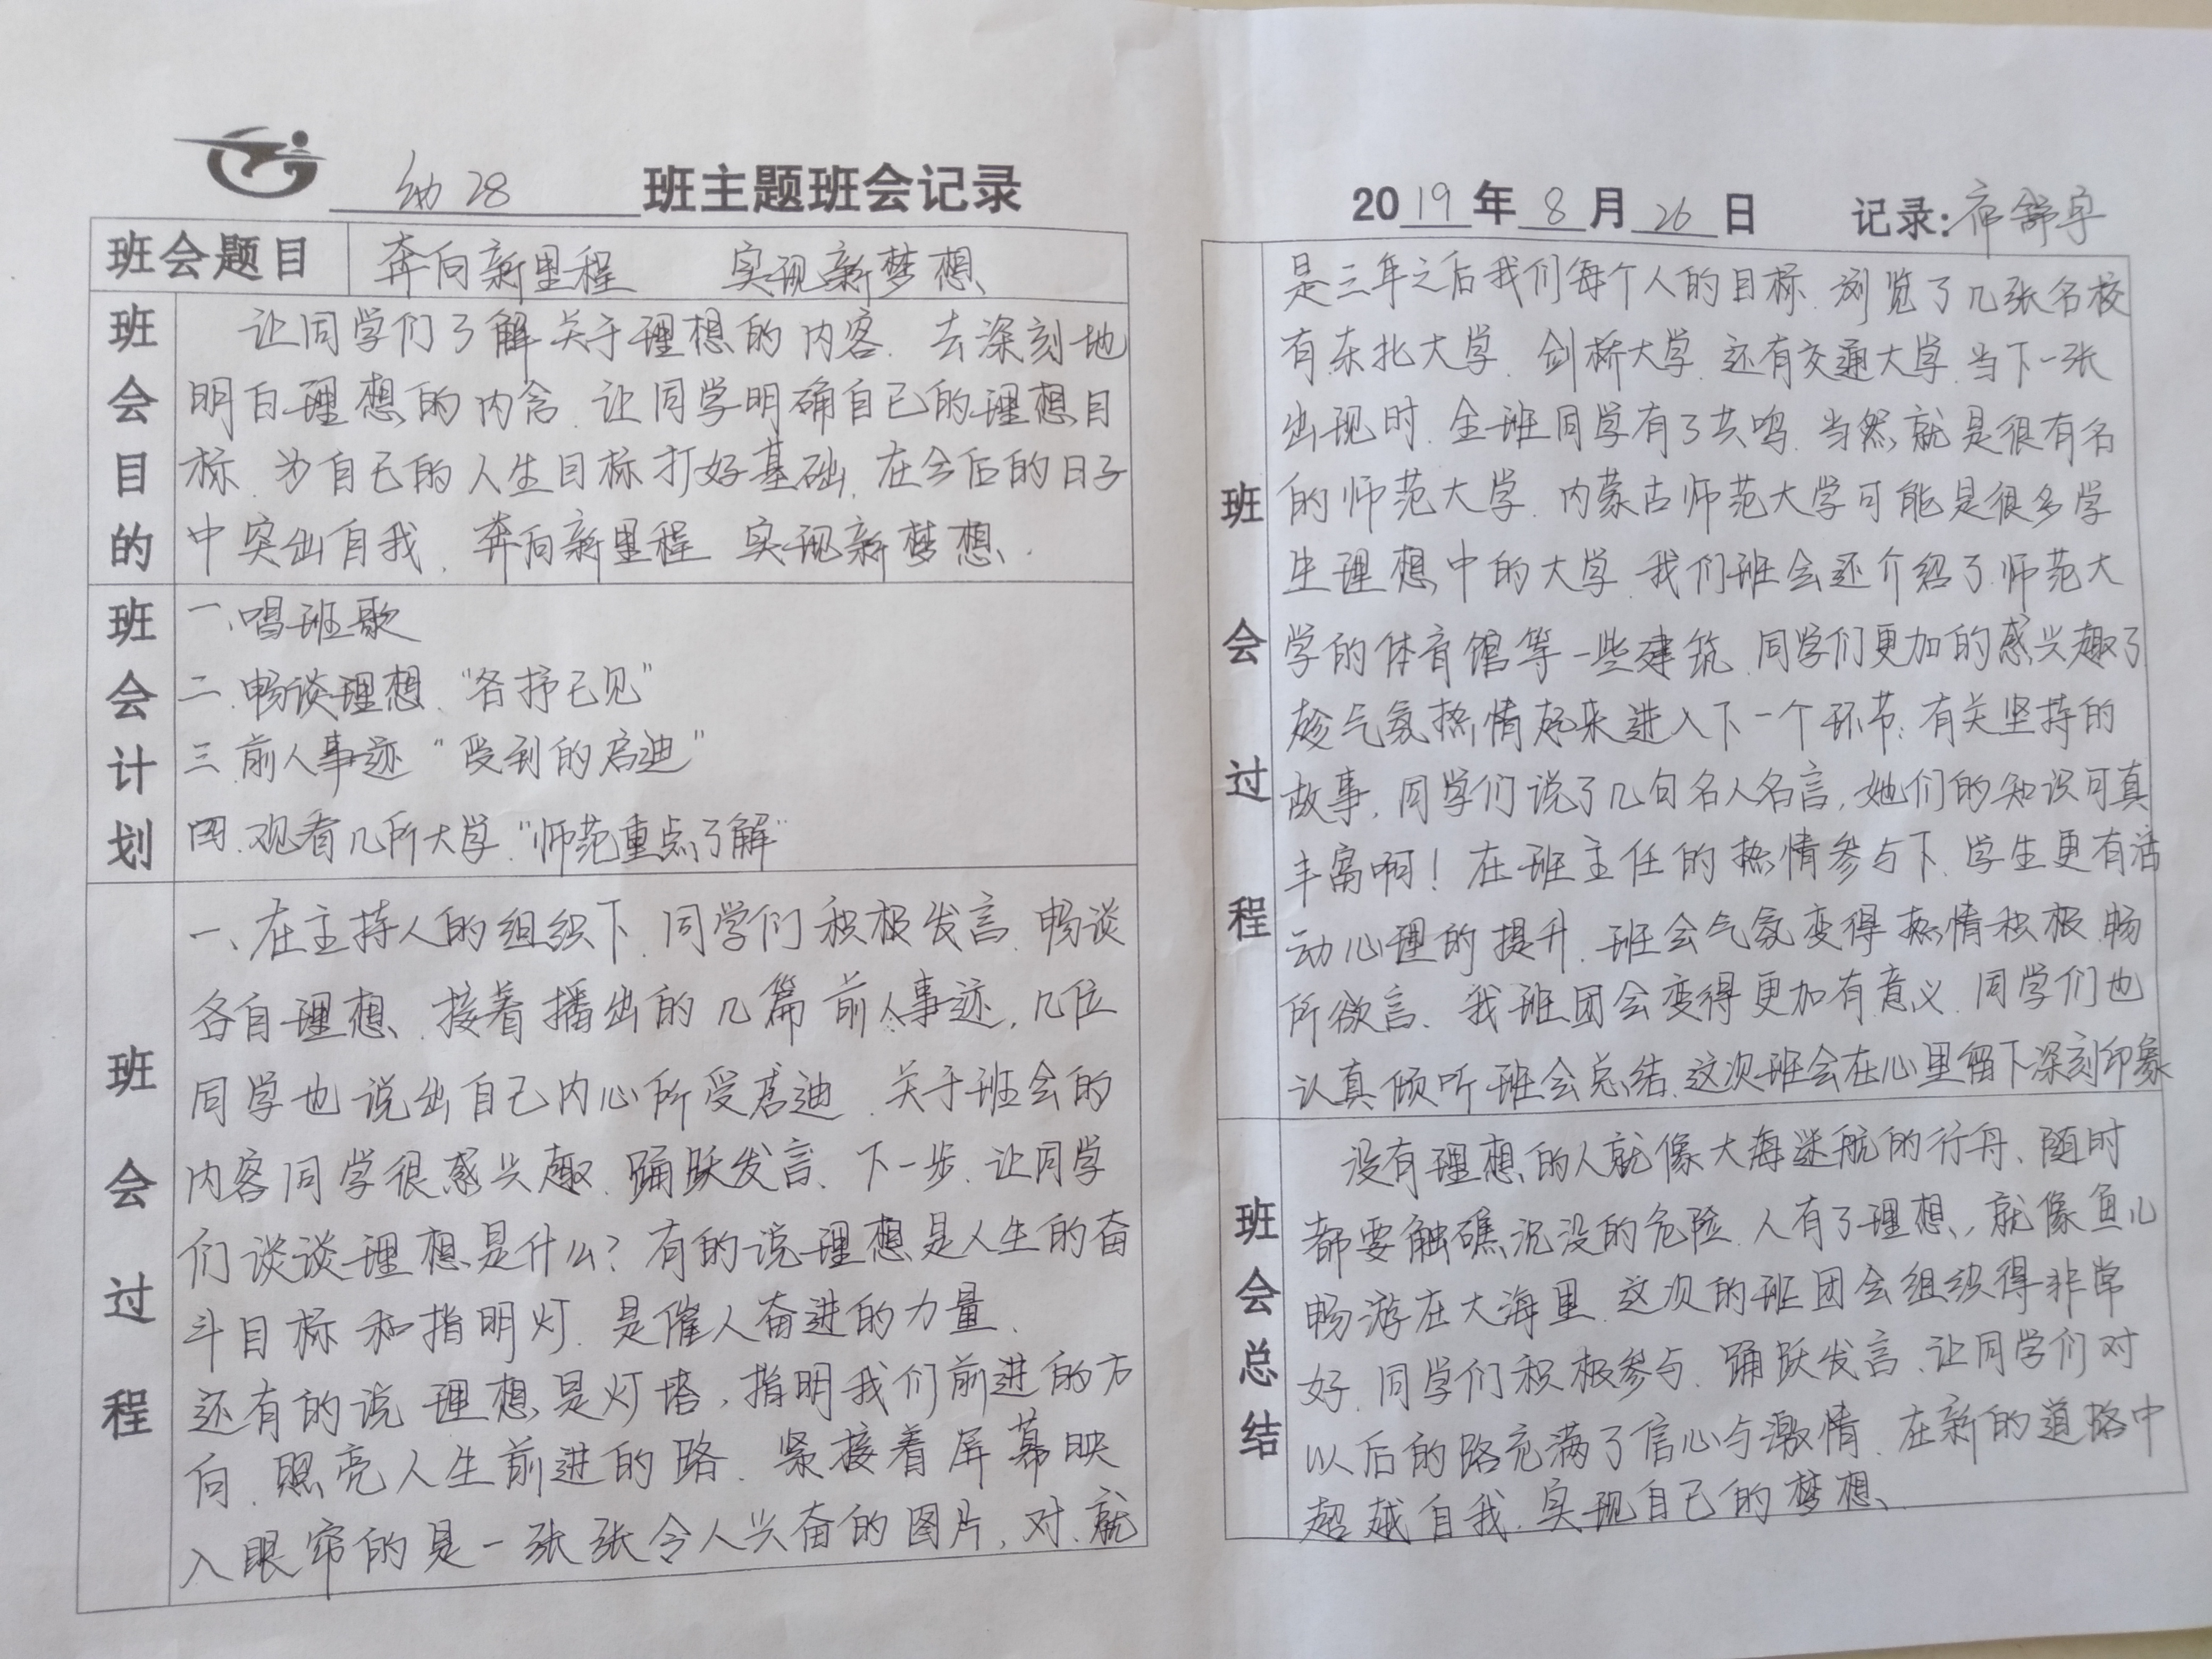 幼28 班主题班会记录
班会题目 奔向新里程 实现新梦想
班会目的
让同学们了解关于理想的内容.去深刻地
明白理想的内含.让同学明确自己的理想目
标.为自己的人生目标打好基础.在今后的日子
中突出自我.奔向新里程 实现新梦想.
班会计划
一、唱班歌
二.畅谈理想."各抒己见"
三.前人事迹"受到的启迪"
四.观看几所大学."师范重点了解"
班会过程
一、在主持人的组织下.同学们积极发言.畅谈
各自理想.接着播出的几篇前人事迹,几位
同学也说出自己内心所受启迪.关于班会的
内容同学很感兴趣.踊跃发言.下一步.让同学
们谈谈理想是什么?有的说理想是人生的奋
斗目标和指明灯.是催人奋进的力量.
还有的说理想是灯塔,指明我们前进的方
向.照亮人生前进的路.紧接着屏幕映
入眼帘的是一张张令人兴奋的图片,对.就
2019年8月26日 记录:
班会过程
是三年之后我们每个人的目标.浏览了几张名校
有东北大学.剑桥大学.还有交通大学.当下一张
出现时.全班同学有了共鸣.当然就是很有名
的师范大学.内蒙古师范大学可能是很多学
生理想中的大学.我们班会还介绍了师范大
学的体育馆等一些建筑.同学们更加的感兴趣了
趁气氛热情起来进入下一个环节.有关坚持的
故事,同学们说了几句名人名言,她们的知识可真
丰富啊!在班主任的热情参与下.学生更有活
动心理的提升.班会气氛变得热情积极.畅
所欲言.我班团会变得更加有意义.同学们也
认真倾听班会总结.这次班会在心里留下深刻印象
班会总结
没有理想的人就像大海迷航的行舟、随时
都要触礁沉没的危险.人有了理想,就像鱼儿
畅游在大海里.这次的班团会组织得非常
好.同学们积极参与.踊跃发言.让同学们对
以后的路充满了信心与激情.在新的道路中
超越自我.实现自己的梦想、